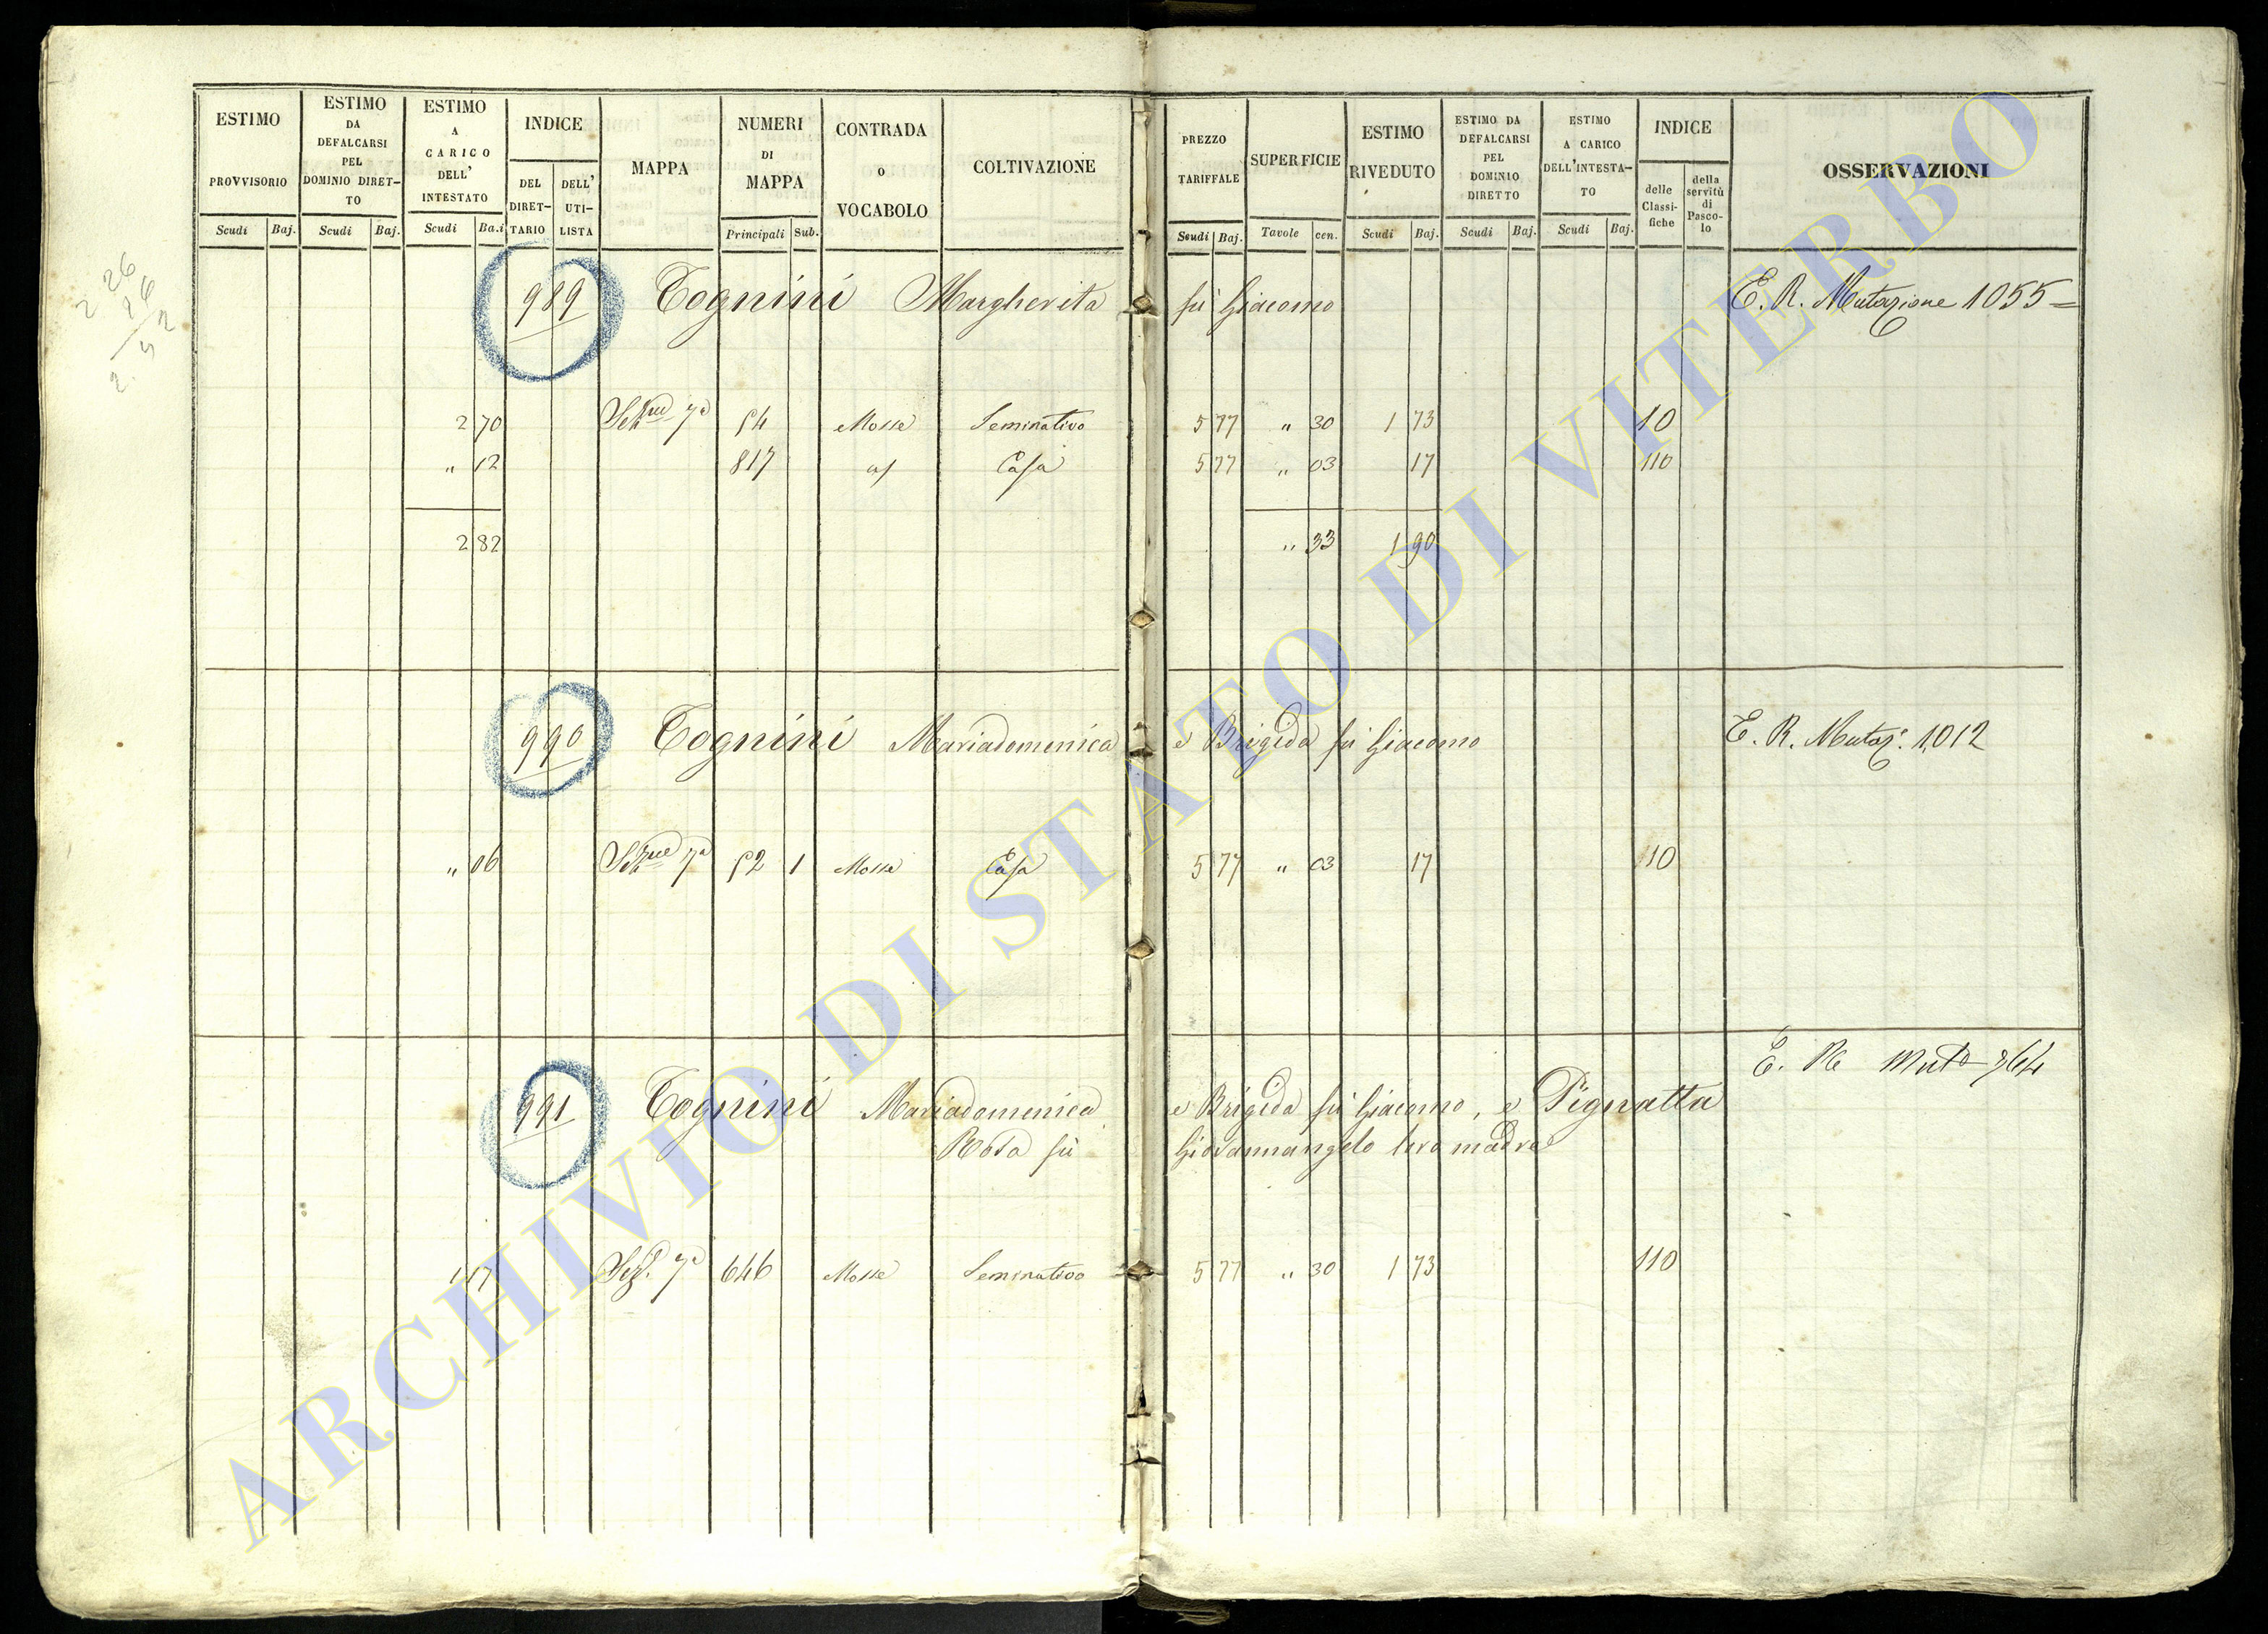 ESTIMO PROVVISORIO Scudi Baj.
ESTIMO DA DEFALCARSI PEL DOMINIO DIRET-TO Scudi Baj.
ESTIMO A CARICO DELL' INTESTATO Scudi Ba.i
INDICE DEL DIRET-TARIO DELL' UTI-LISTA
MAPPA
NUMERI DI MAPPA Principali Sub.
CONTRADA o VOCABOLO
COLTIVAZIONE
PREZZO TARIFFALE Scudi Baj.
SUPERFICIE Tavole cen.
ESTIMO RIVEDUTO Scudi Baj.
ESTIMO DA DEFALCARSI PEL DOMINIO DIRETTO Scudi Baj.
ESTIMO A CARICO DELL'INTESTA-TO Scudi Baj.
INDICE delle Classi-fiche della servitù di Pasco-lo
OSSERVAZIONI
989 Tognini Margherita fù Giacomo E. R. Mutazione 1055=
2 70 7a 54 Mossa Seminativo 5 77 " 30 1 73 110
" 12 817 Casa 5 77 " 03 17 110
2 82 " 33 1 90
990 Tognini Mariadomenica e Brigida fù Giacomo E. R. Mutaz. 1012
" 06 7a 52 1 Mossa Casa 5 77 " 03 17 110
E. R.
991 Tognini Mariadomenica e Brigida fù Giacomo, e Pignatta
Rosa fù Giovannangelo loro madre
1 17 Sez. 7a 646 Mossa Seminativo 5 77 " 30 1 73 110
ARCHIVIO DI STATO DI VITERBO